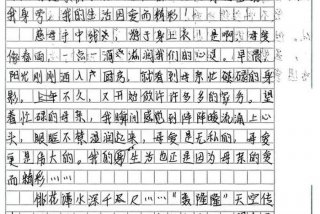 我身旁，我的生活因爱而精彩！
慈母手中线，游子身上衣！是母爱
像春雨一点一滴滋润我们的心灵。早晨，
阳光刚刚洒入户，就看到母亲忙碌的身
影，上午不久，又开始做许许多多的家务。望
着忙碌的母亲，我瞬间感到阵阵暖流涌上心
头，眼眶不禁湿润起来，母爱是无私的，母爱
更是伟大的。我的生活也正是因为母亲的爱
而精彩……
桃花潭水深千尺……“轰隆隆”天空传